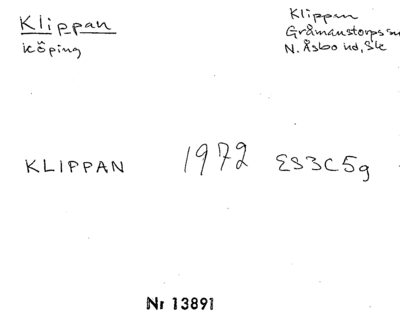 Klippan
köping
Klippan
Gråmanstorps sn
N. Åsbo hd, Sk
KLIPPAN 1972 ES3C5g
Nr 13891